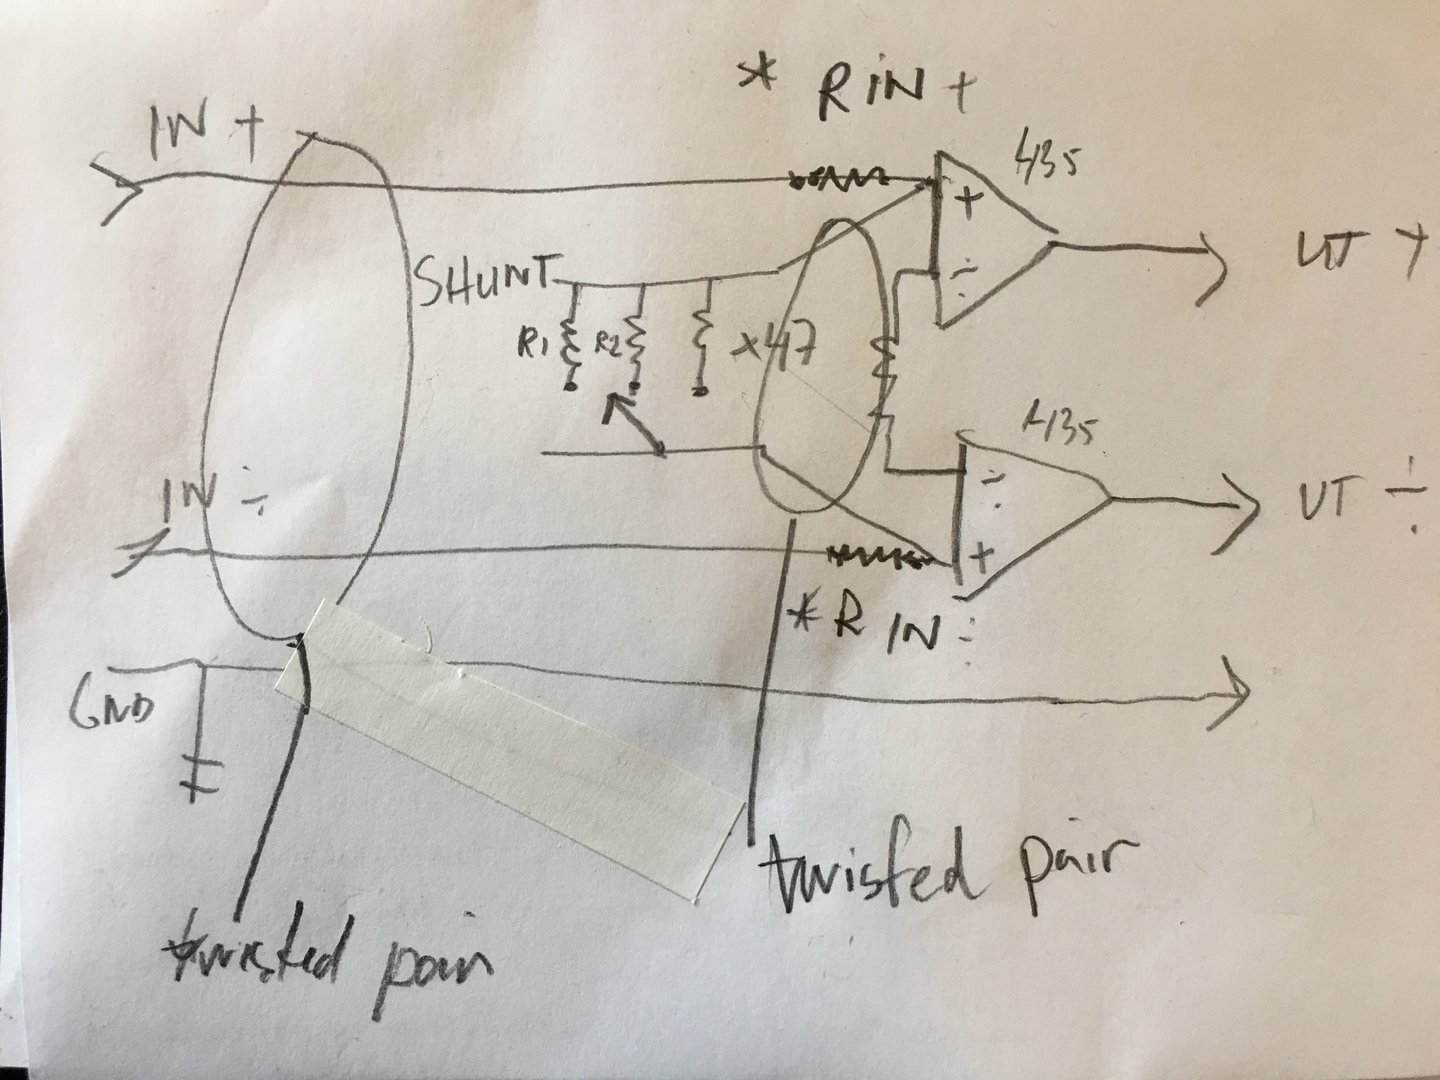 * R IN +
IN +
435
+
÷
UT +
SHUNT
R1 R2 x47
435
÷
+
IN ÷
UT ÷
* R IN ÷
GND
twisted pair
twisted pair